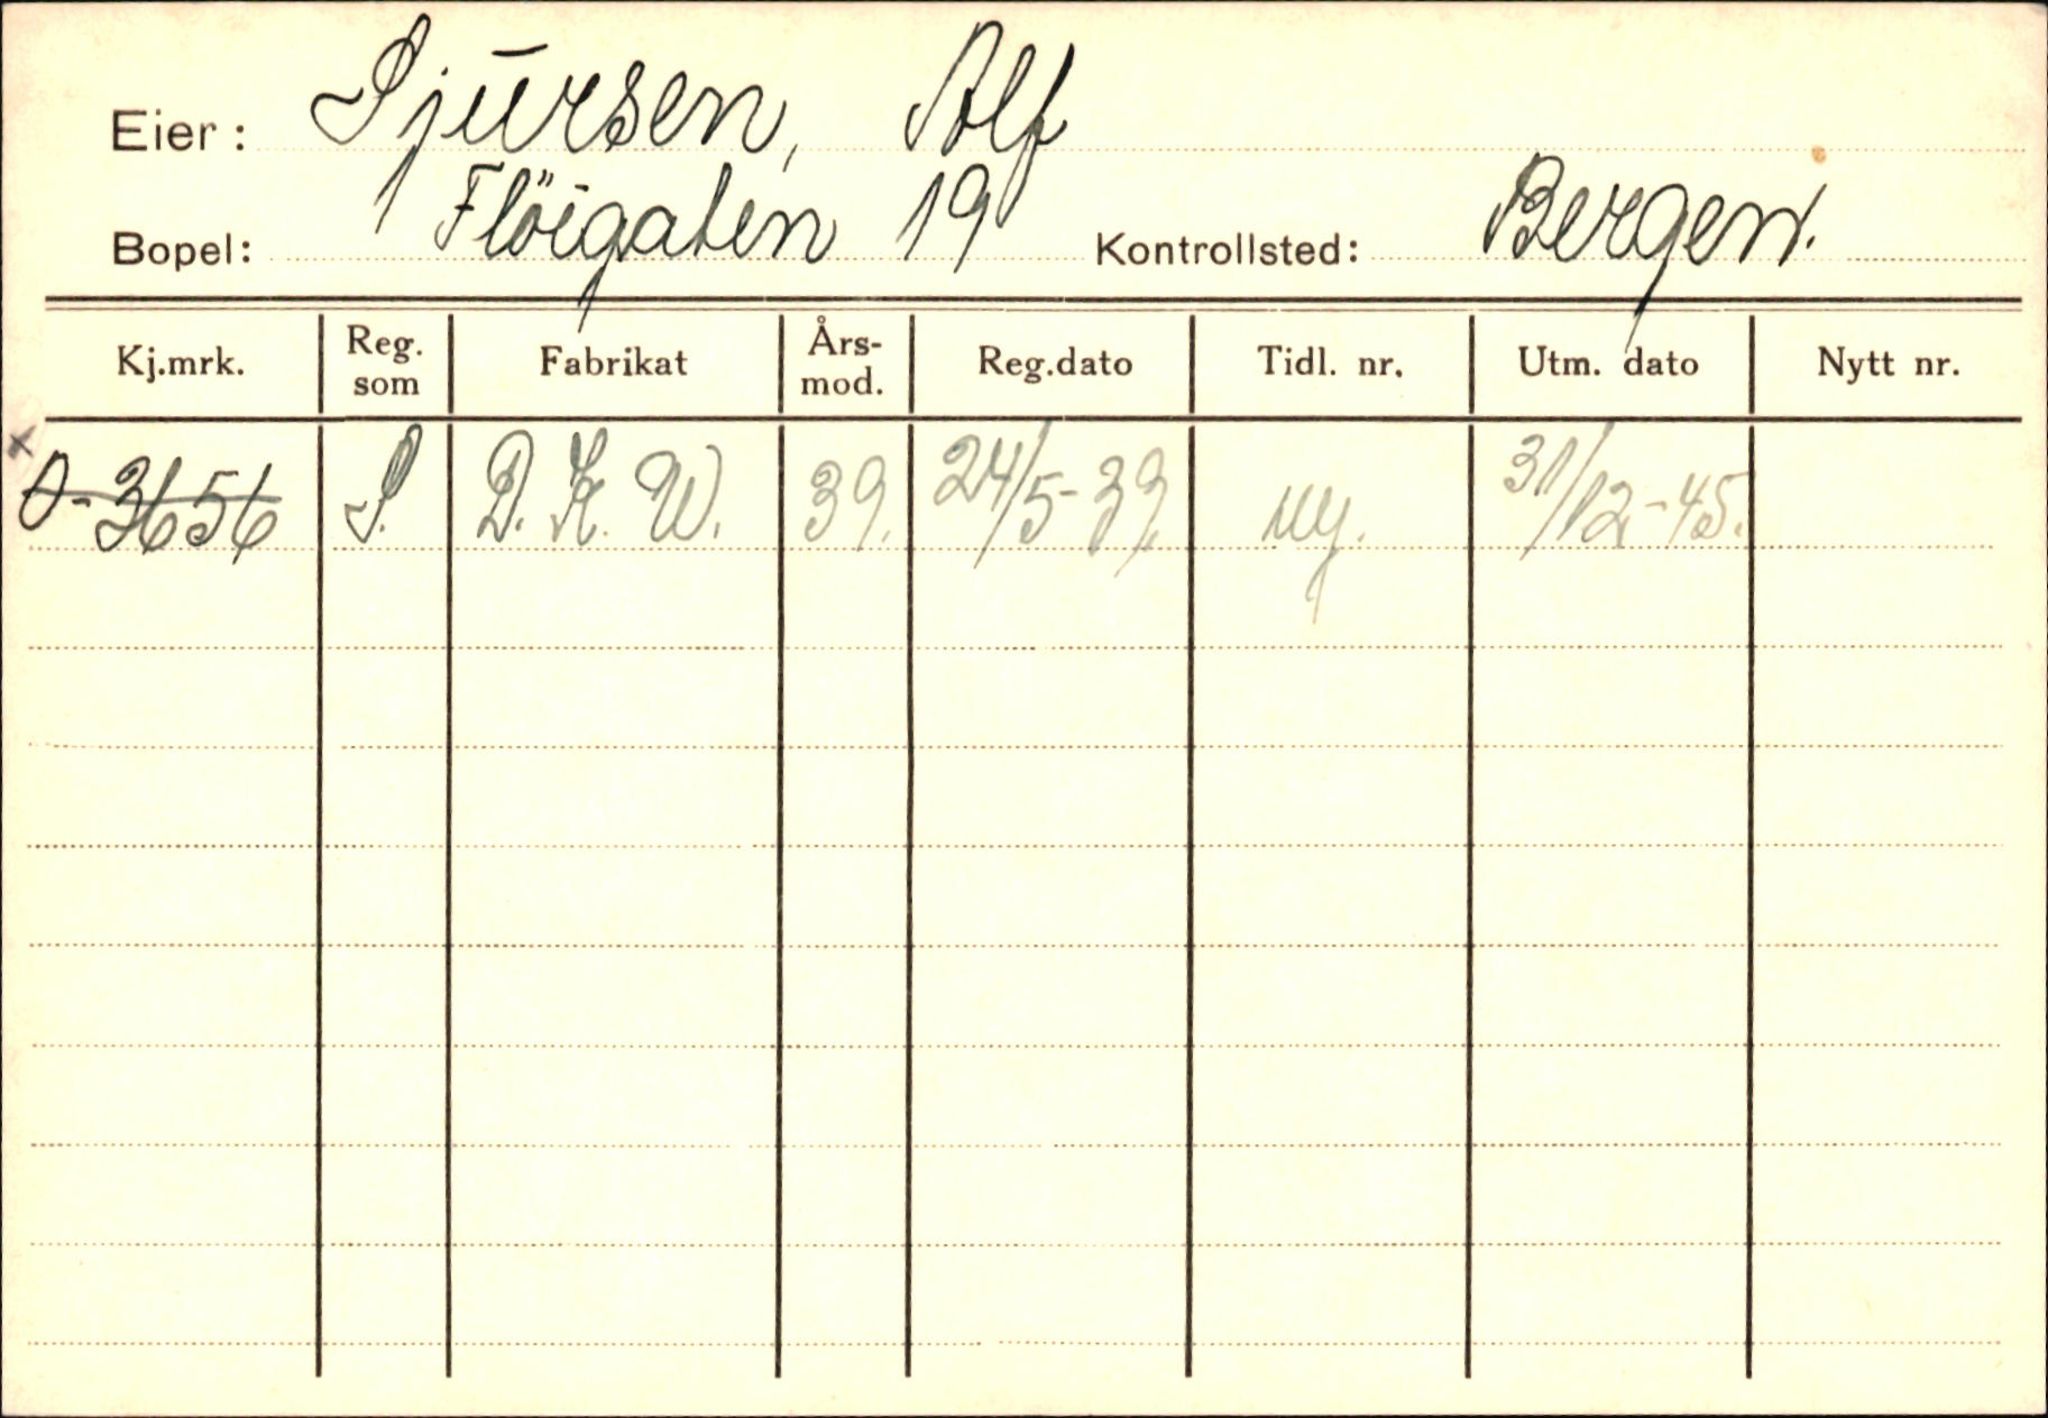 Eier: Sjursen, Alf
Bopel: Flöigaten 19 Kontrollsted: Bergen.
Kj.mrk. Reg. som Fabrikat Års-mod. Reg.dato Tidl. nr. Utm. dato Nytt nr.
x O-3656 P. D.K.W. 39. 24/5-39. ny. 31/12-45.